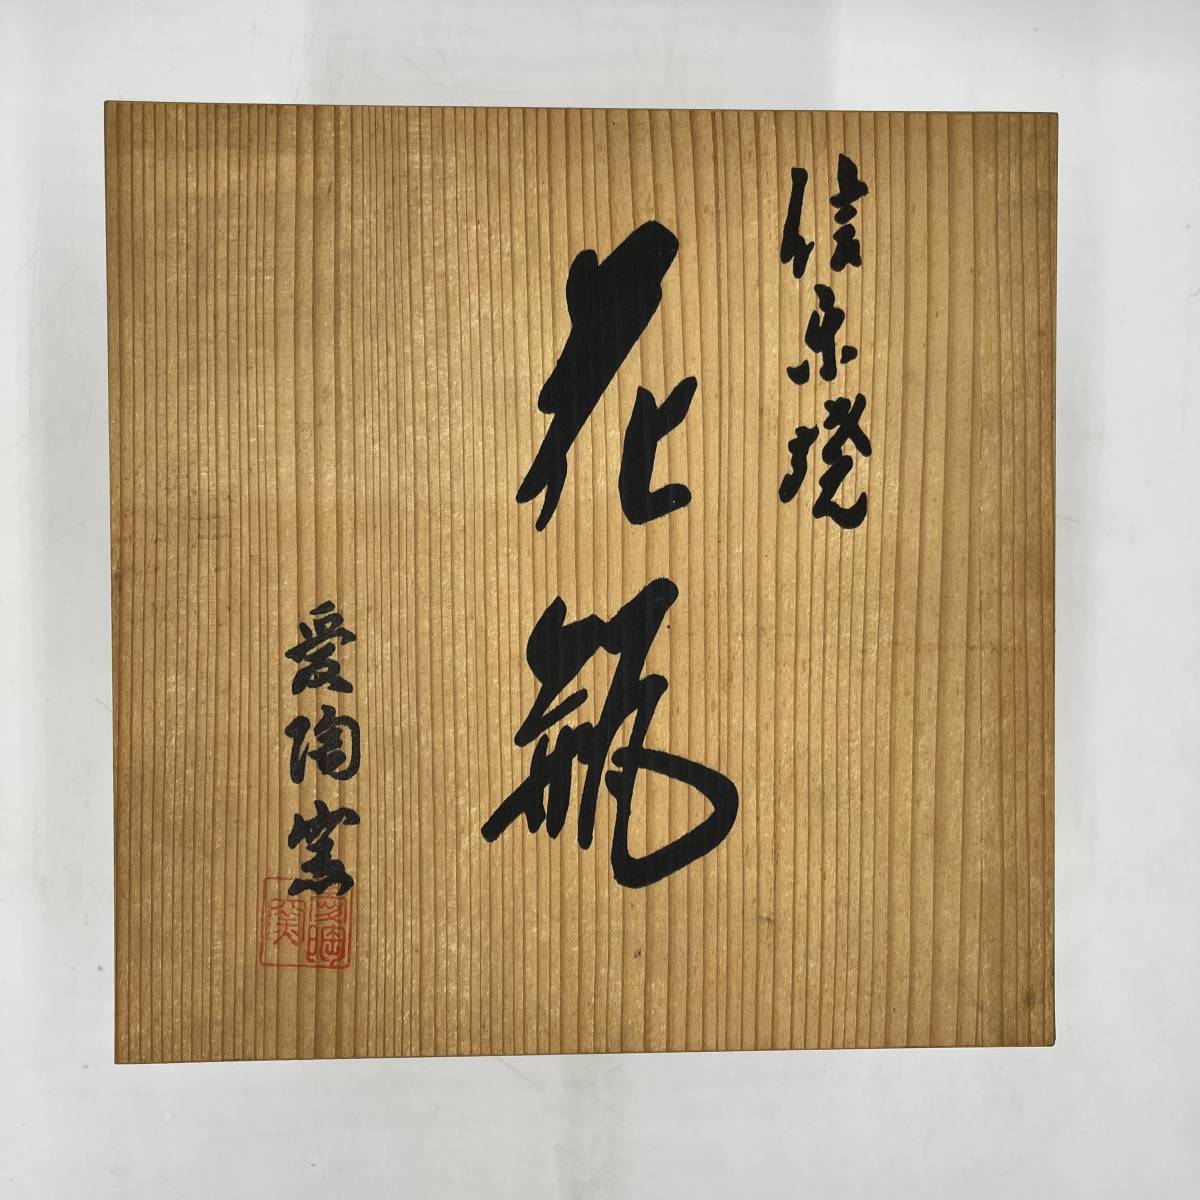 信楽焼
花瓶
愛陶窯